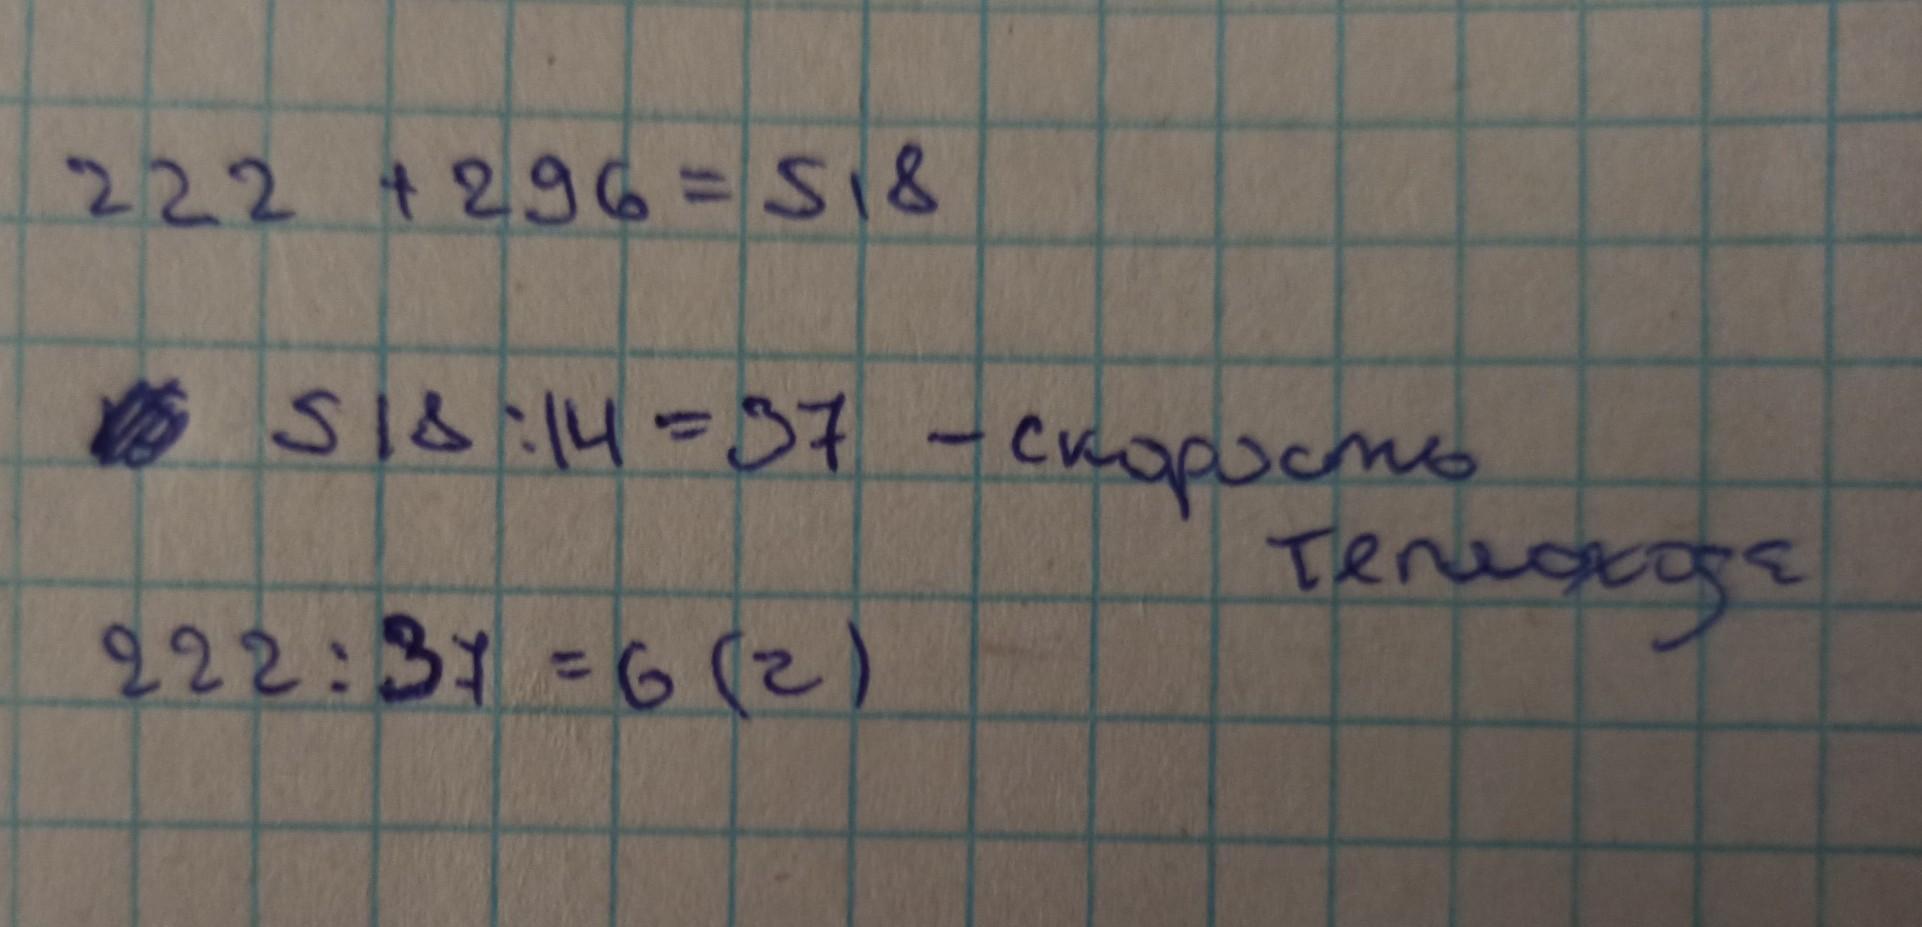 222 + 296 = 518
518 : 14 = 37 - скорость
теплохода
222 : 37 = 6 (2)